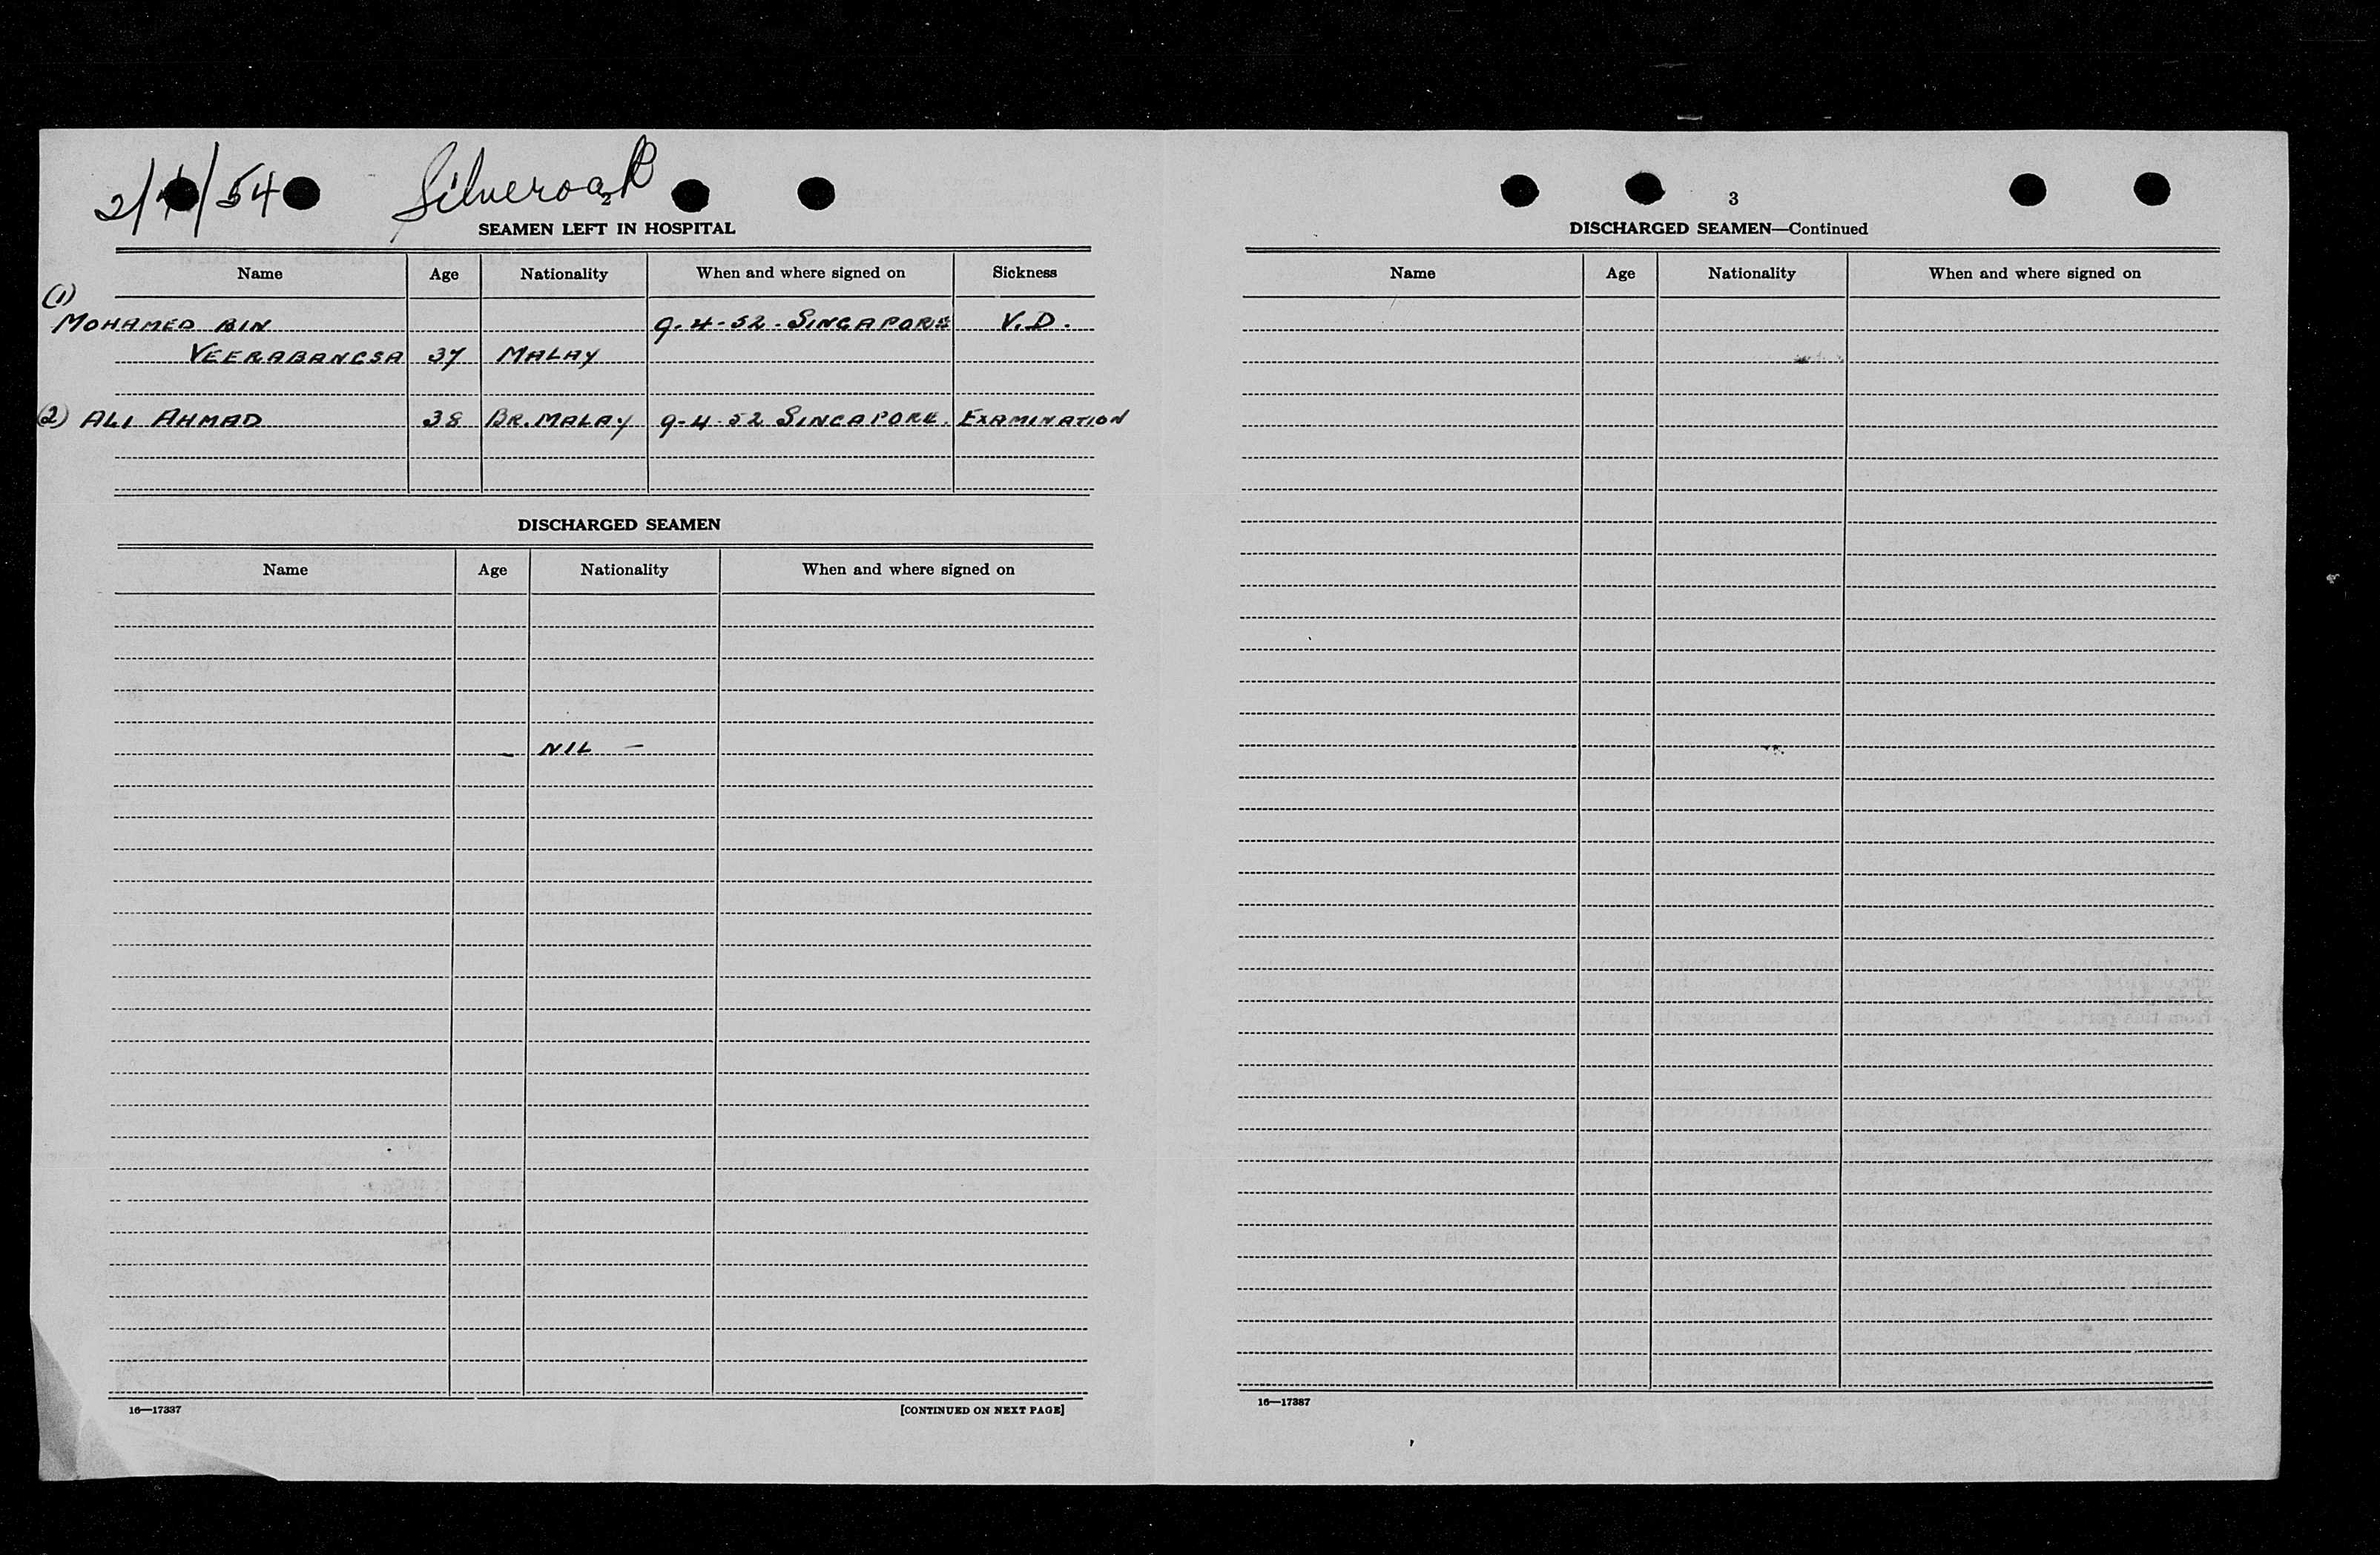 2/ /54 Silveroak
2
SEAMEN LEFT IN HOSPITAL
Name Age Nationality When and where signed on Sickness
(1)
MOHAMED BIN 9-4-52. SINGAPORE V.D.
VEERABANGSA 37 MALAY
(2) ALI AHMAD 38 BR. MALAY 9-4-52 SINGAPORE. EXAMINATION
DISCHARGED SEAMEN
Name Age Nationality When and where signed on
- NIL -
16—17337 [CONTINUED ON NEXT PAGE]
3
DISCHARGED SEAMEN—Continued
Name Age Nationality When and where signed on
16—17387